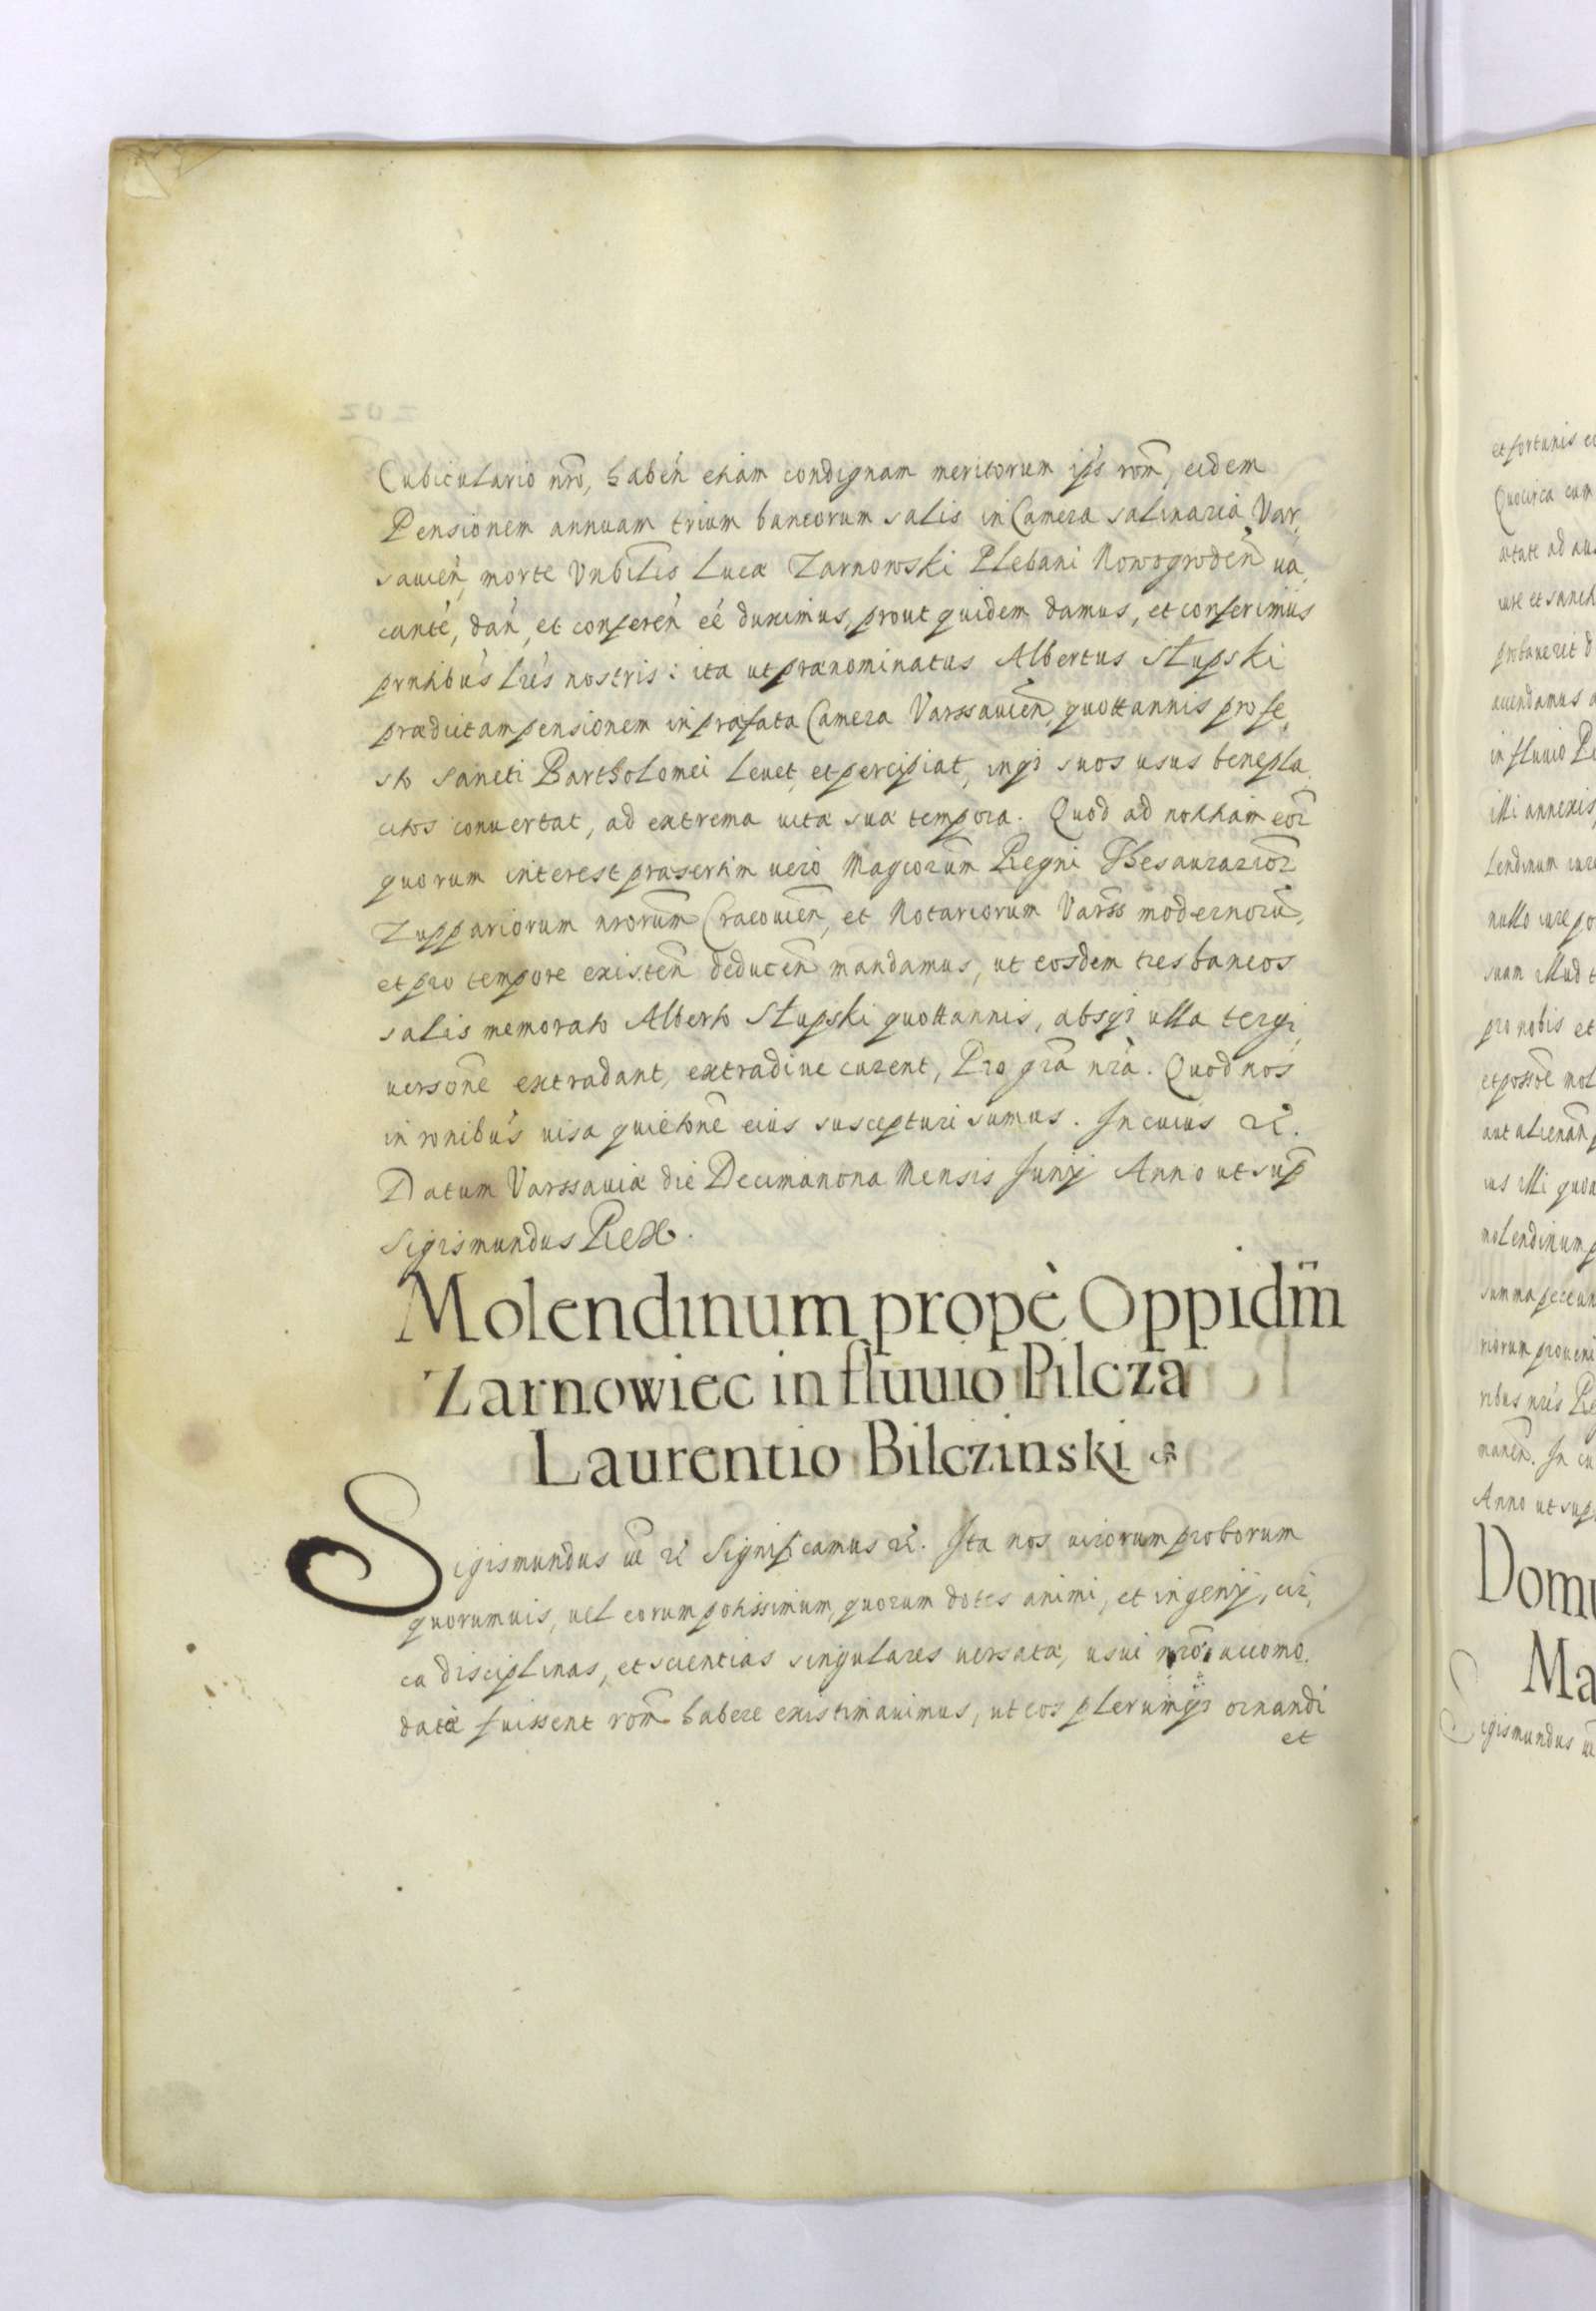 Cubiculario nrō, habeń etiam condignam meritorum ip̄s rom̄, eidem
Pensionem annuam trium bancorum salis in Camera salinaria Var,
sauień, morte Vnbīlis Lucæ Zarnowski Plebani Nowogrodeń ua,
canté, dań, et confereń eé duximus, prout quidem damus, et conferimus
prntibús Lrés nostris: ita ut prænominatus Albertus Słupski
prædictam pensionem in præfata Camera Varssauień, quottannis profe,
sto Sancti Bartholomei Leuet, et percipiat, inqz suos usus benepla,
citos conuertat, ad extrema uitæ suæ tempora. Quod ad notitiam eor̄
quorum interest præsertim uerò Magcorum̄ Regni Thesaurarior̄
Zuppariorum nrorum̄ Cracouień, et Notariorum Varss̄ modernorū,
et pro tempore existeń deduceń mandamus, ut eosdem tres bancos
salis memorato Alberto Słupski quottannis, absqz ulla tergi,
uersoǹe extradant, extradiue curent, Pro gr̄a nr̄a. Quod nos
in ronibús uisa quietoǹe eius suscepturi sumus. In cuius rė.
Datum Varssauiæ die Decimanona Mensis Junij Anno ut sup̄
Sigismundus Rex.
Molendinum propè Oppidūm
Zarnowiec in fluuio Pilcza
Laurentio Bilczinski
Sigismundus ūe rė Significamus rė. Ita nos uirorum proborum
quorumuis, uel eorum potissimum, quorum dotes animi, et ingenij, cir,
ca disciplinas, et scientias singulares uersatæ, usui nrō, accomo,
datæ fuissent rom̄ habere existimauimus, ut eos plerumqz ornandi
et
et fortunis
Quocirca cum
ætate ad
iure et
probauerit
in fluuio
illi annexis
Lendinum
nullo iure
suam illud
pro nobis et
et possōe
aut alienań
ius illi
molendinum
summa
riorum
ribus nrīs
maneń. In
Anno ut sup
Domu
Ma
Sigismundus ūe